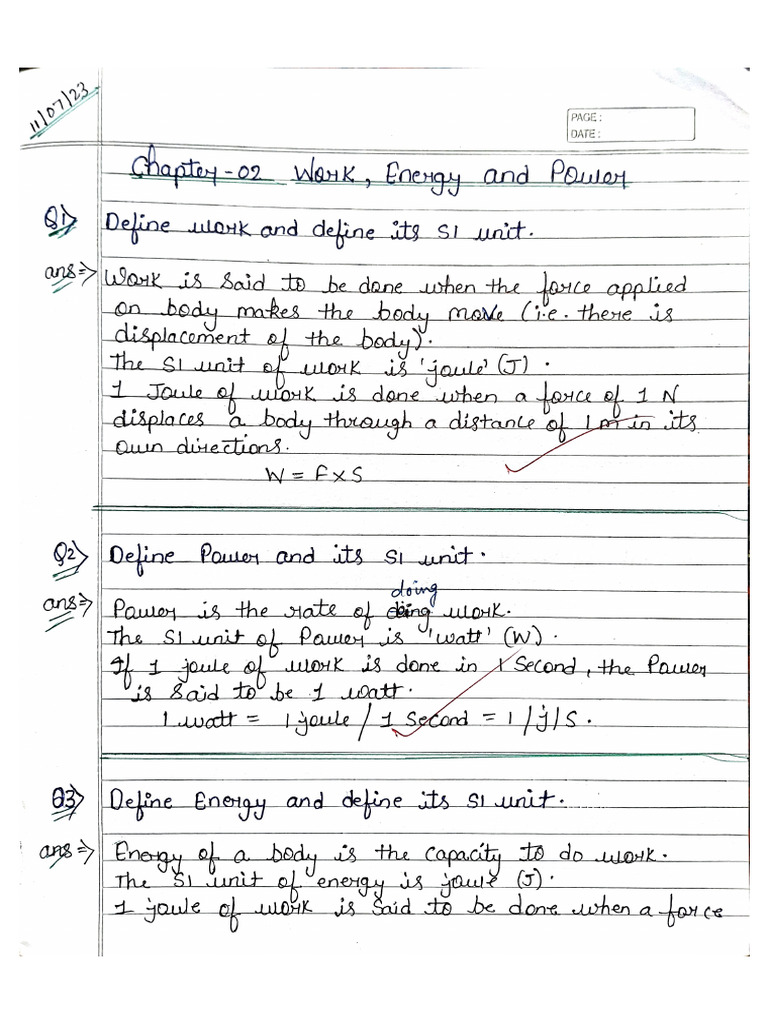 11/07/23
PAGE:
DATE:
Chapter-02 Work, Energy and Power
Q1> Define work and define its SI unit.
ans=> Work is said to be done when the force applied
on body makes the body move (i.e. there is
displacement of the body).
The SI unit of work is 'joule' (J).
1 Joule of work is done when a force of 1 N
displaces a body through a distance of 1 m in its
own directions.
W = F×S
Q2> Define Power and its SI unit.
doing
ans=> Power is the rate of work.
The SI unit of Power is 'watt' (W).
If 1 joule of work is done in 1 Second, the Power
is said to be 1 watt.
1 watt = 1 joule / 1 Second = 1 / j / S.
Q3> Define Energy and define its SI unit.
ans=> Energy of a body is the capacity to do work.
The SI unit of energy is joule (J).
1 joule of work is said to be done when a force